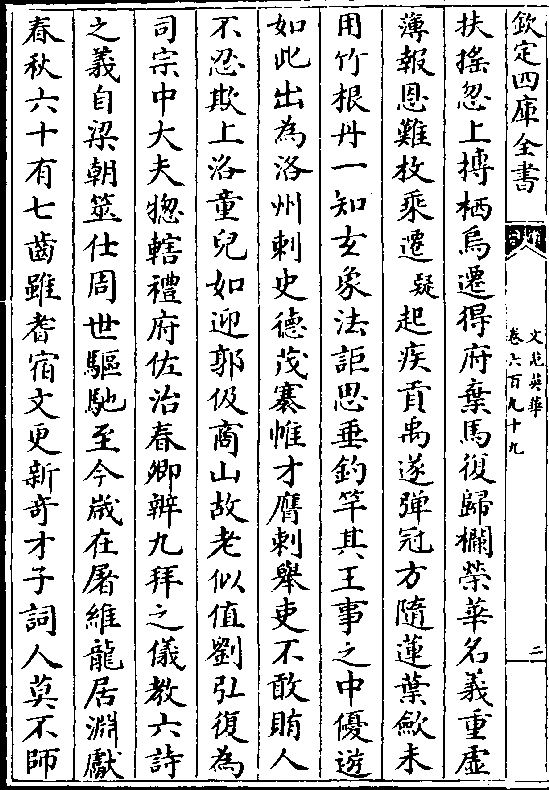 欽定四庫全書
文苑英華
卷六百九十九
二
扶摇忽上摶栖烏遷得府棄馬復歸欄榮華名義重虛
薄報恩難枚乘遷疑起疾貢禹遂彈冠方隨蓮葉歛未
用竹根丹一知玄象法詎思垂釣竿其王事之中優遊
如此出為洛州刺史德茂褰帷才膺刺舉吏不敢賄人
不忍欺上洛童兒如迎郭伋商山故老似值劉弘復為
司宗中大夫揔轄禮府佐治春卿辨九拜之儀教六詩
之義自梁朝筮仕周世驅馳至今歲在屠維龍居淵獻
春秋六十有七齒雖耆宿文更新奇才子詞人莫不師